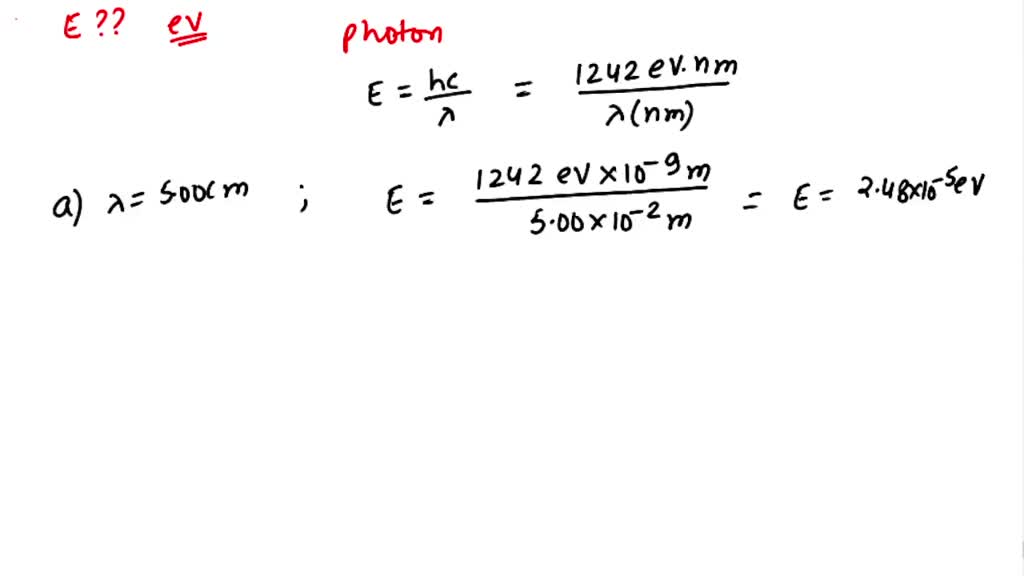 E ?? ev photon
E = hc/λ = 1242 ev.nm/λ(nm)
a) λ = 500cm ; E = 1242 ev×10⁻⁹m/5.00×10⁻²m = E = 2.48×10⁻⁵ev